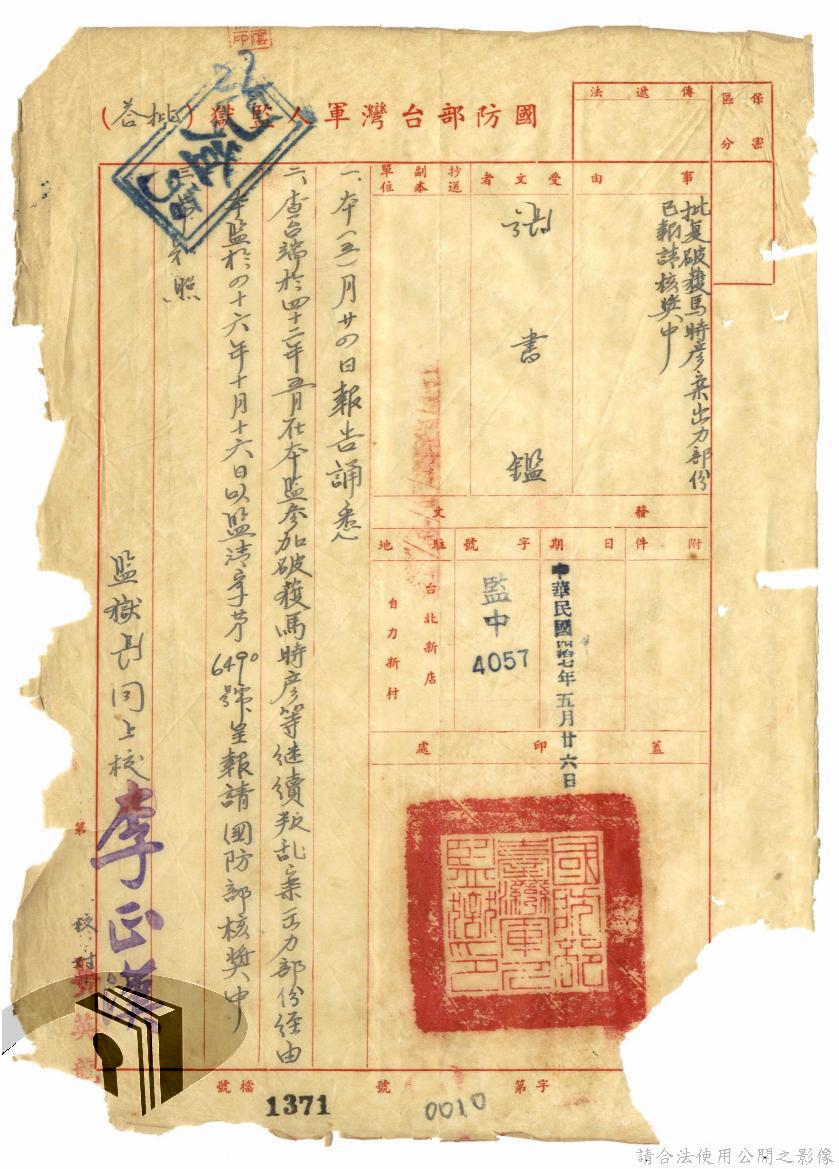 國防部台灣軍人監獄(批答)
保密區分
傳遞法
事由
批复破獲馬時彥案出力部份
已報請核獎中
受文者
張書鑑
抄送副本單位
發文
附件
日期
中華民國四拾七年五月廿六日
字號
監中
4057
駐地
台北新店
自力新村
蓋印處
國防部
臺灣軍人
監獄印
一、本(五)月廿四日報告誦悉
二、查台端於四十二年五月在本監參加破獲馬時彥等繼續叛乱案出力部份經由
本監於四十六年十月十六日以監清字第6490號呈報請國防部核獎中
三、希知照
監獄長同上校
李正漢
第
校對
英龍
字第
號
0010
檔號
1371
請合法使用公開之影像